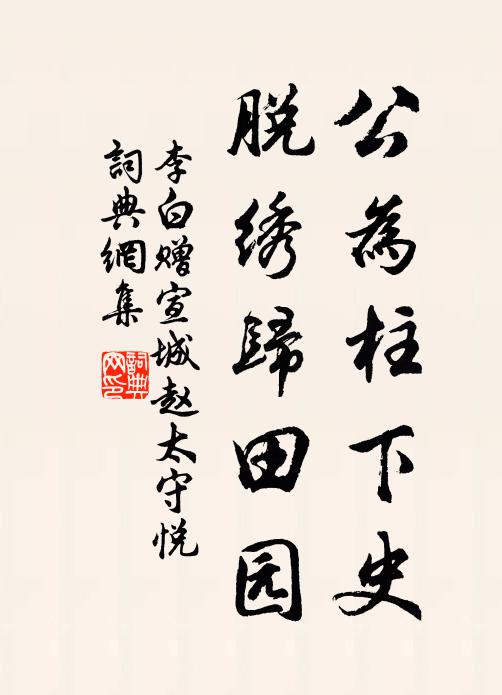 公為柱下史
脱绣歸田园
李白赠宣城赵太守悦
詞典網集
詞典网印